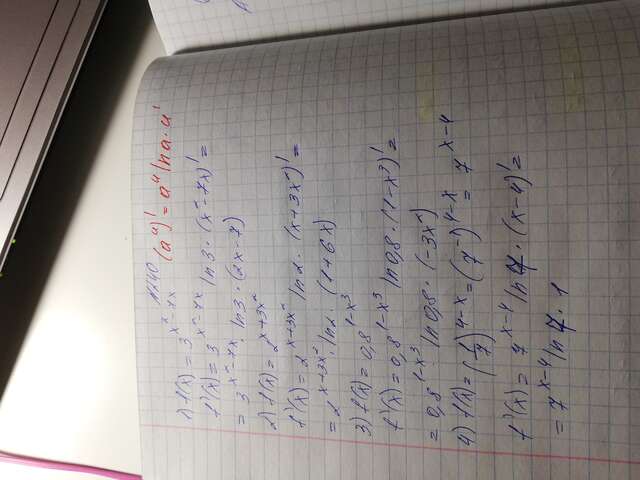 №240 (a^u)' = a^u ln a · u'
1) f(x) = 3^(x²-7x)
f'(x) = 3^(x²-7x) ln 3 · (x²-7x)' =
= 3^(x²-7x) · ln 3 · (2x-7)
2) f(x) = 2^(x+3x²)
f'(x) = 2^(x+3x²) ln 2 · (x+3x²)' =
= 2^(x+3x²) · ln 2 · (1+6x)
3) f(x) = 0,8^(1-x³)
f'(x) = 0,8^(1-x³) ln 0,8 · (1-x³)' =
= 0,8^(1-x³) ln 0,8 · (-3x²)
4) f(x) = (1/7)^(4-x) = (7^(-1))^(4-x) = 7^(x-4)
f'(x) = 7^(x-4) ln 7 · (x-4)' =
= 7^(x-4) ln 7 · 1